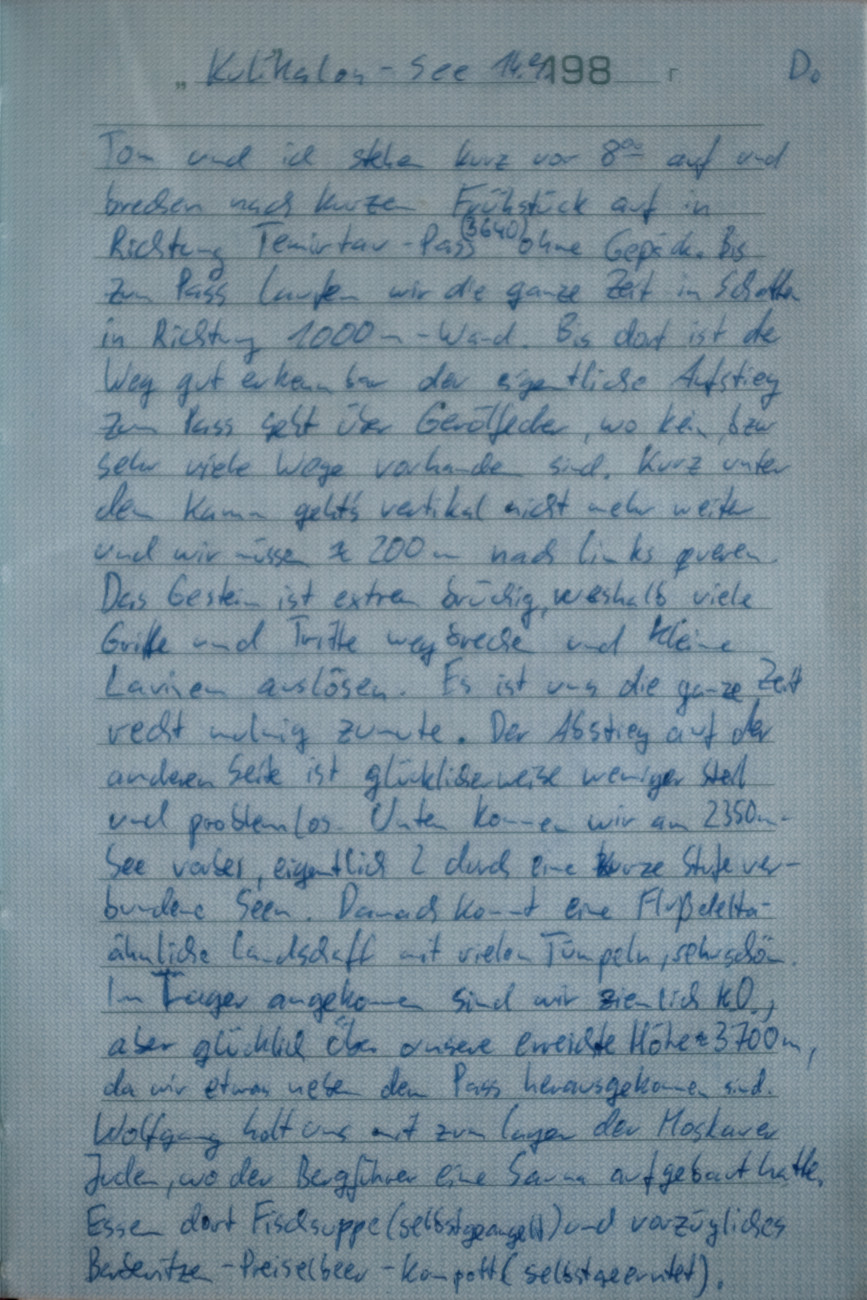 „ Kulikalon - See 14.9. 198 г Do
Tom und ich stehen kurz vor 8°° auf und
brechen nach kurzem Frühstück auf in
Richtung Temirtau-Pass (3640) ohne Gepäck. Bis
zum Pass laufen wir die ganze Zeit im Schatten
in Richtung 1000m-Wand. Bis dort ist der
Weg gut erkennbar der eigentliche Aufstieg
zum Pass geht über Geröllfelder, wo kein, bzw
sehr viele Wege vorhanden sind. Kurz unter
dem Kamm geht's vertikal nicht mehr weiter
und wir müssen ≈ 200 m nach links queren.
Das Gestein ist extrem brüchig, weshalb viele
Griffe und Tritte wegbrechen und kleine
Lawinen auslösen. Es ist uns die ganze Zeit
recht mulmig zumute. Der Abstieg auf der
anderen Seite ist glücklicherweise weniger steil
und problemlos. Unten kommen wir am 2350m-
See vorbei, eigentlich 2 durch eine kurze Stufe ver-
bundene Seen. Danach kommt eine Flußdelta-
ähnliche Landschaft mit vielen Tümpeln, sehr schön.
Im Lager angekommen sind wir ziemlich k.O.,
aber glücklich über unsere erreichte Höhe ≈ 3700m,
da wir etwas neben dem Pass herausgekommen sind.
Wolfgang holt uns mit zum Lager der Moskauer
Juden, wo der Bergführer eine Sauna aufgebaut hatte.
Essen dort Fischsuppe (selbstgeangelt) und vorzügliches
Berberitzen-Preiselbeer-Kompott (selbstgeerntet).